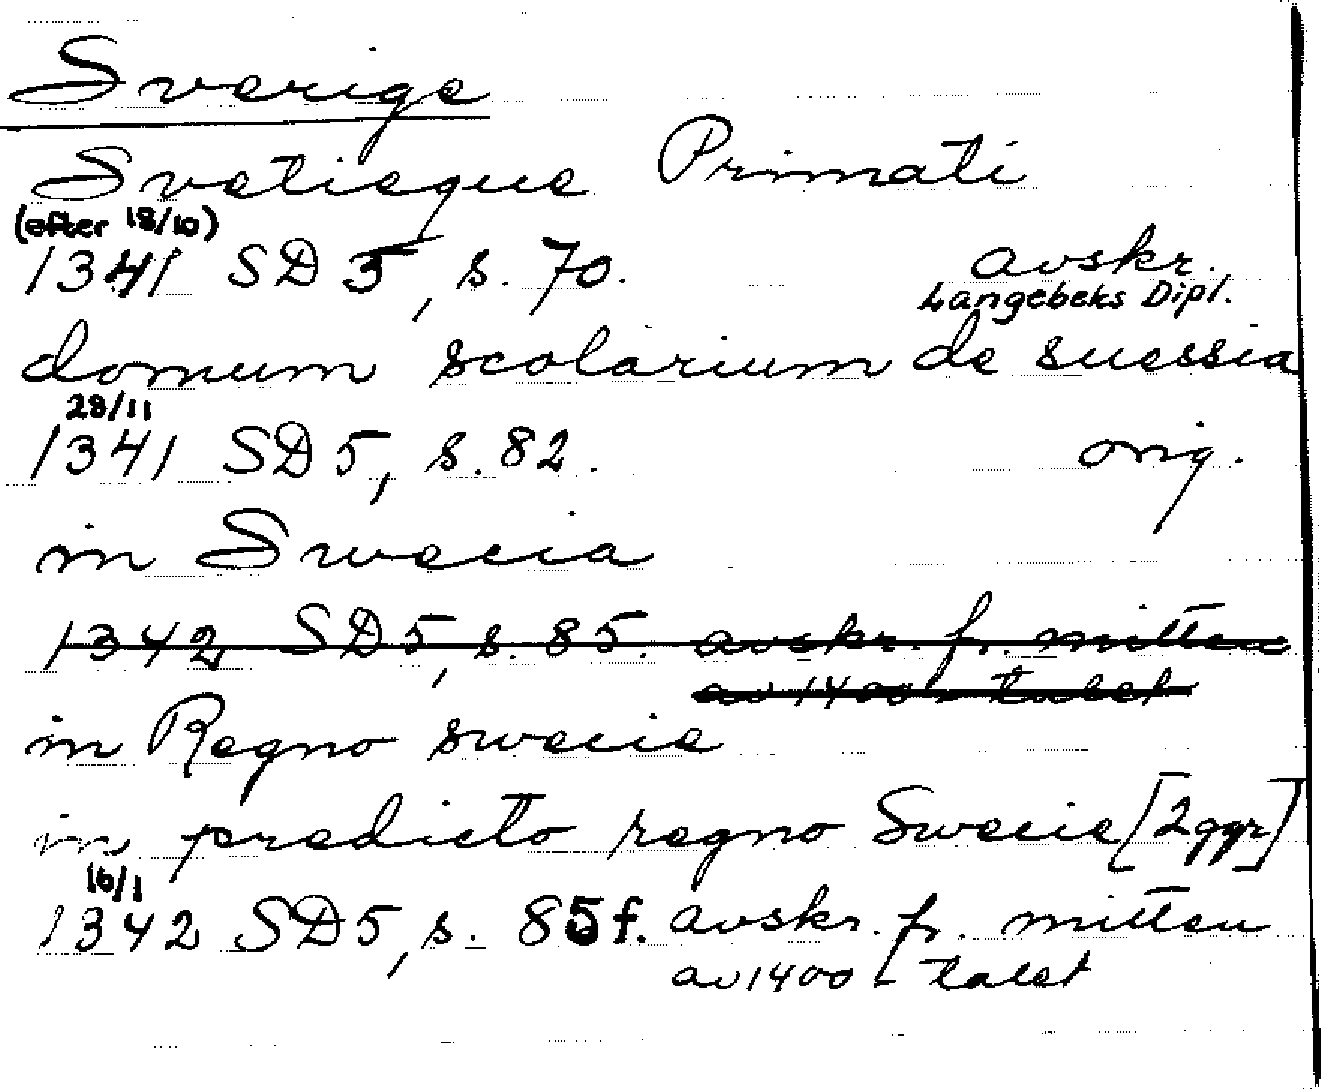 Sverige
Svetieque Primati
(efter 18/10)
1341 SD 5, s. 70. avskr.
Langebeks Dipl.
domum scolarium de suessia
28/11
1341 SD 5, s. 82. orig.
in Swecia
1342 SD 5, s. 85. avskr. fr. mitten
av 1400-talet
in Regno swecie
in predicto regno Swecie [2 ggr]
16/1
1342 SD 5, s. 85 f. avskr. fr. mitten
av 1400-talet